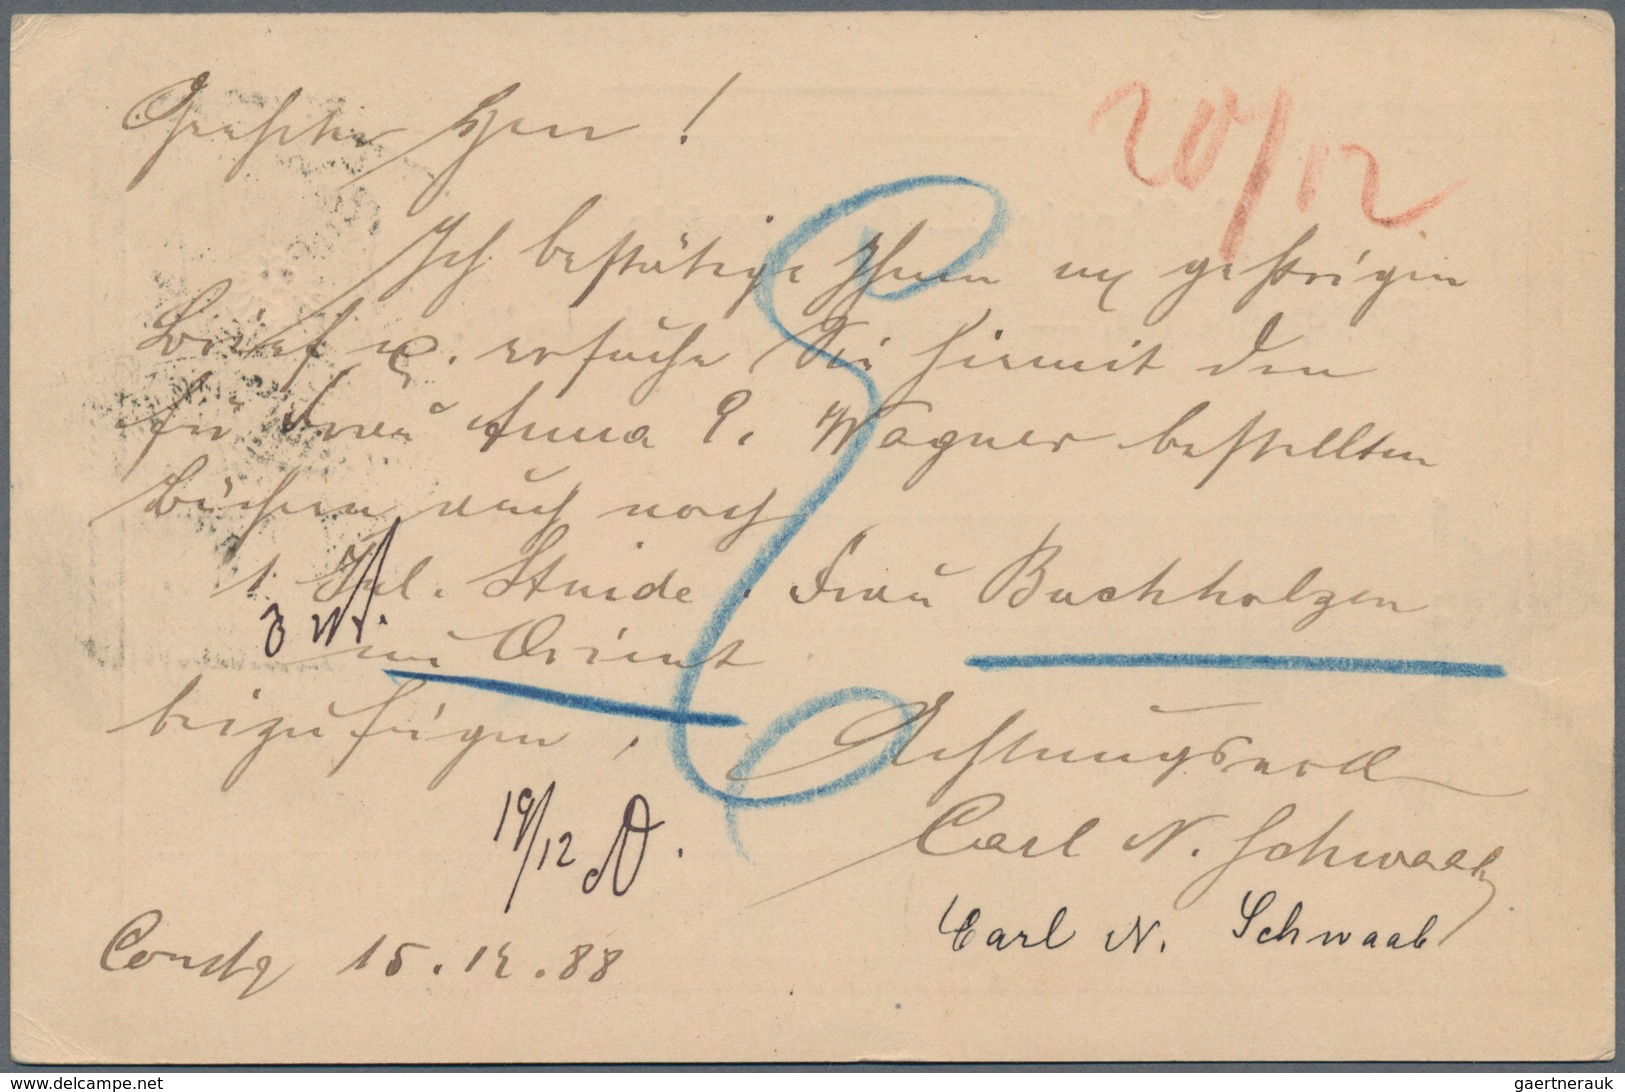 Geehrter Herr!
20/12
Ich bestätige Ihnen m gestrigen
Brief u. ersuche Sie hiermit den
für Frau Anna P. Wagner bestellten
Büchern auch noch
1. Stinde. Frau Buchholzen
3 M.
im Orient
beizufügen.
Achtungsvoll
19/12
Carl N. Schwaab
Carl N. Schwaab
15.12.88
www.delcampe.net
gaertnerauk